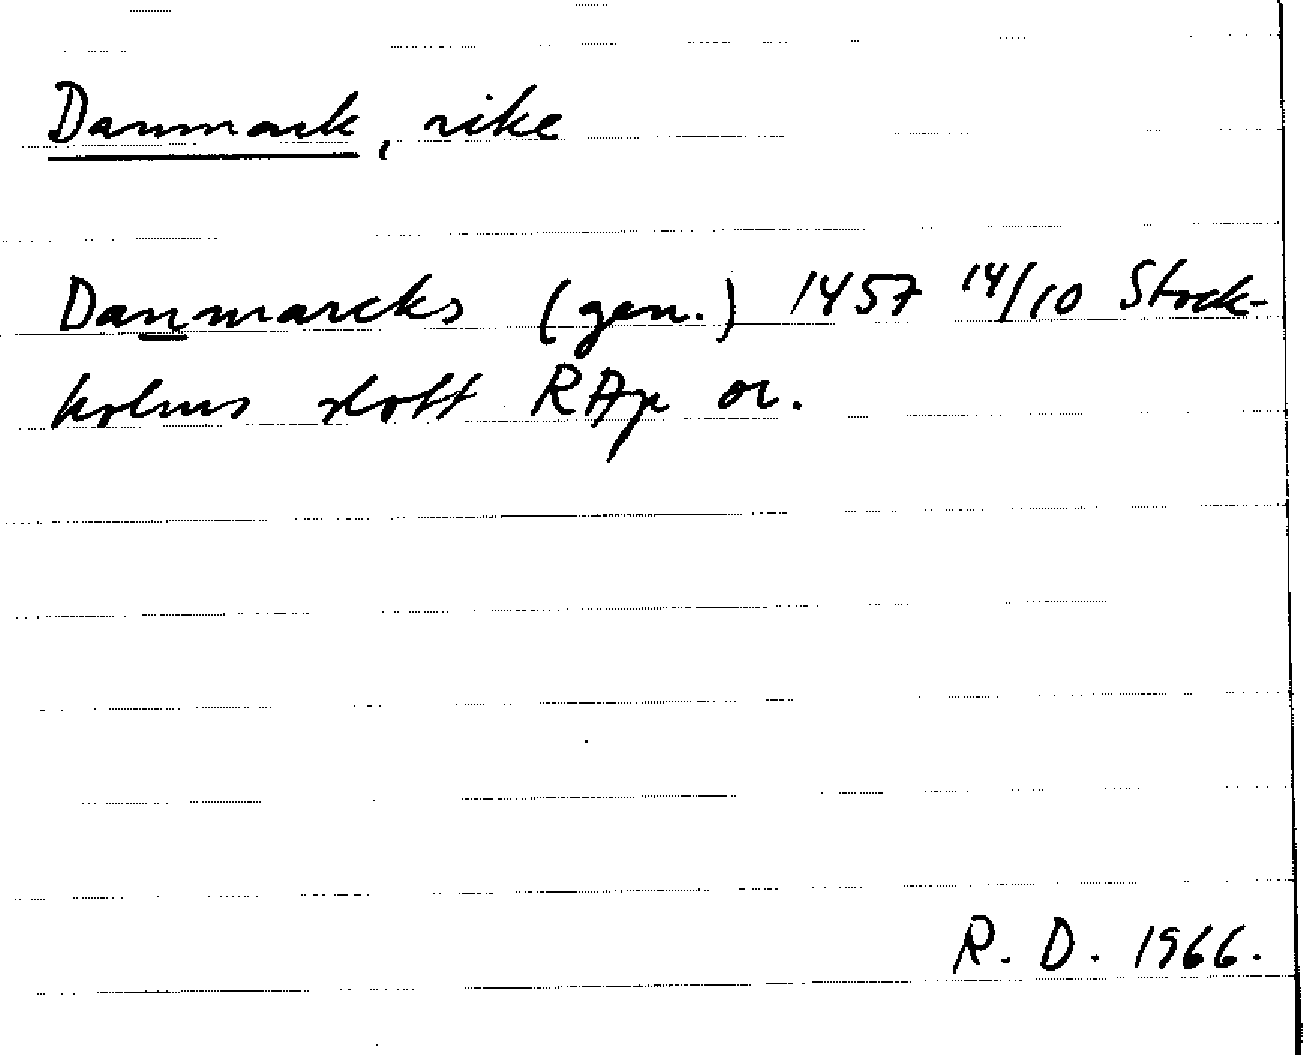 Danmark, rike
Danmarcks (gen.) 1457 14/10 Stock-
holms slott RAp or.
R. D. 1966.